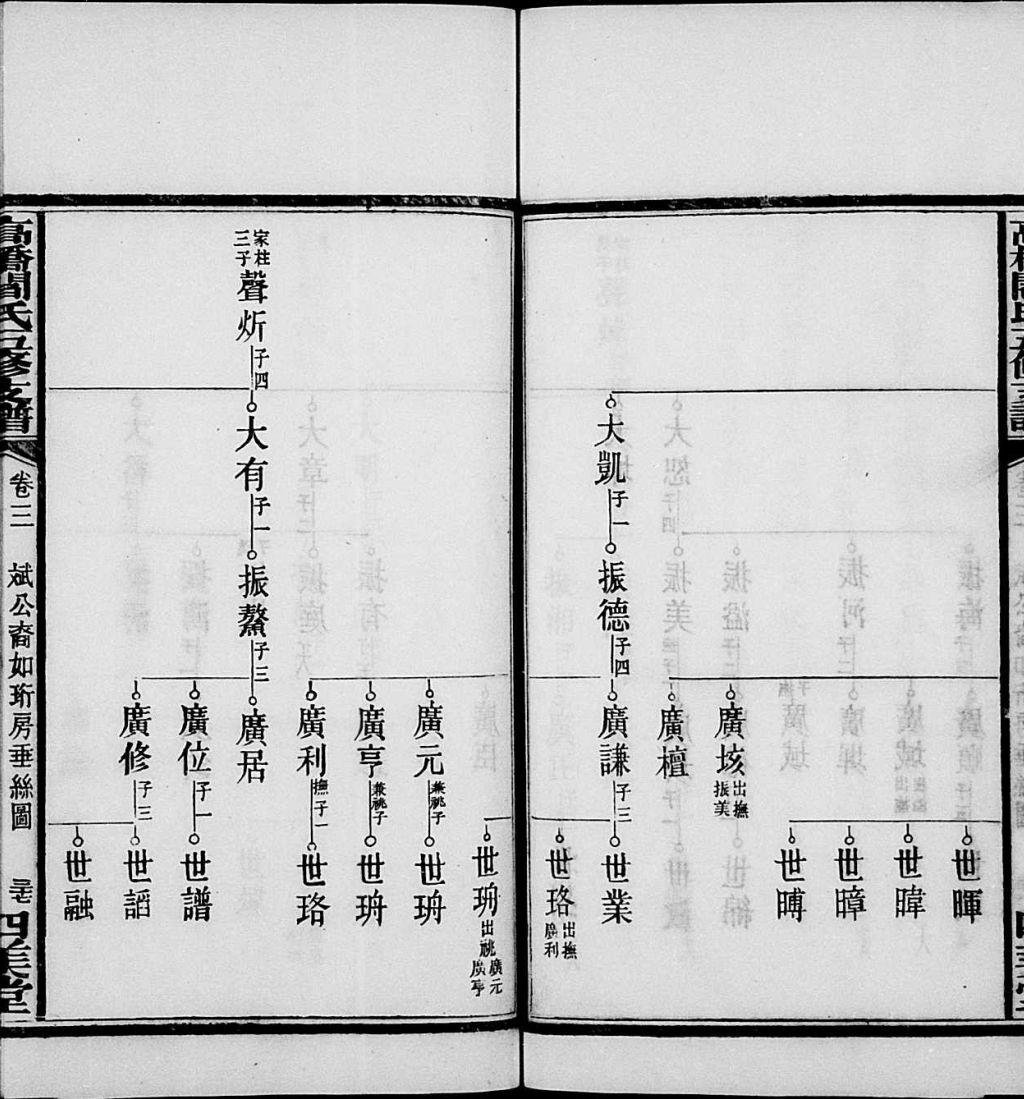 大凱
子一
振德
子四
廣垓
出撫
振美
廣檀
廣謙
子三
世暉
世暐
世暲
世㬍
世業
世珞
出撫
廣利
家柱
三子
聲炘
子四
大有
子一
振鰲
子三
廣元
兼祧子
廣亨
兼祧子
廣利
撫子一
廣居
廣位
子一
廣修
子三
世珘
出祧
廣元
廣亨
世珘
世珘
世珞
世譜
世謟
世融
高橋閻氏五修支譜
卷三
斌公裔如珩房垂絲圖
四美堂